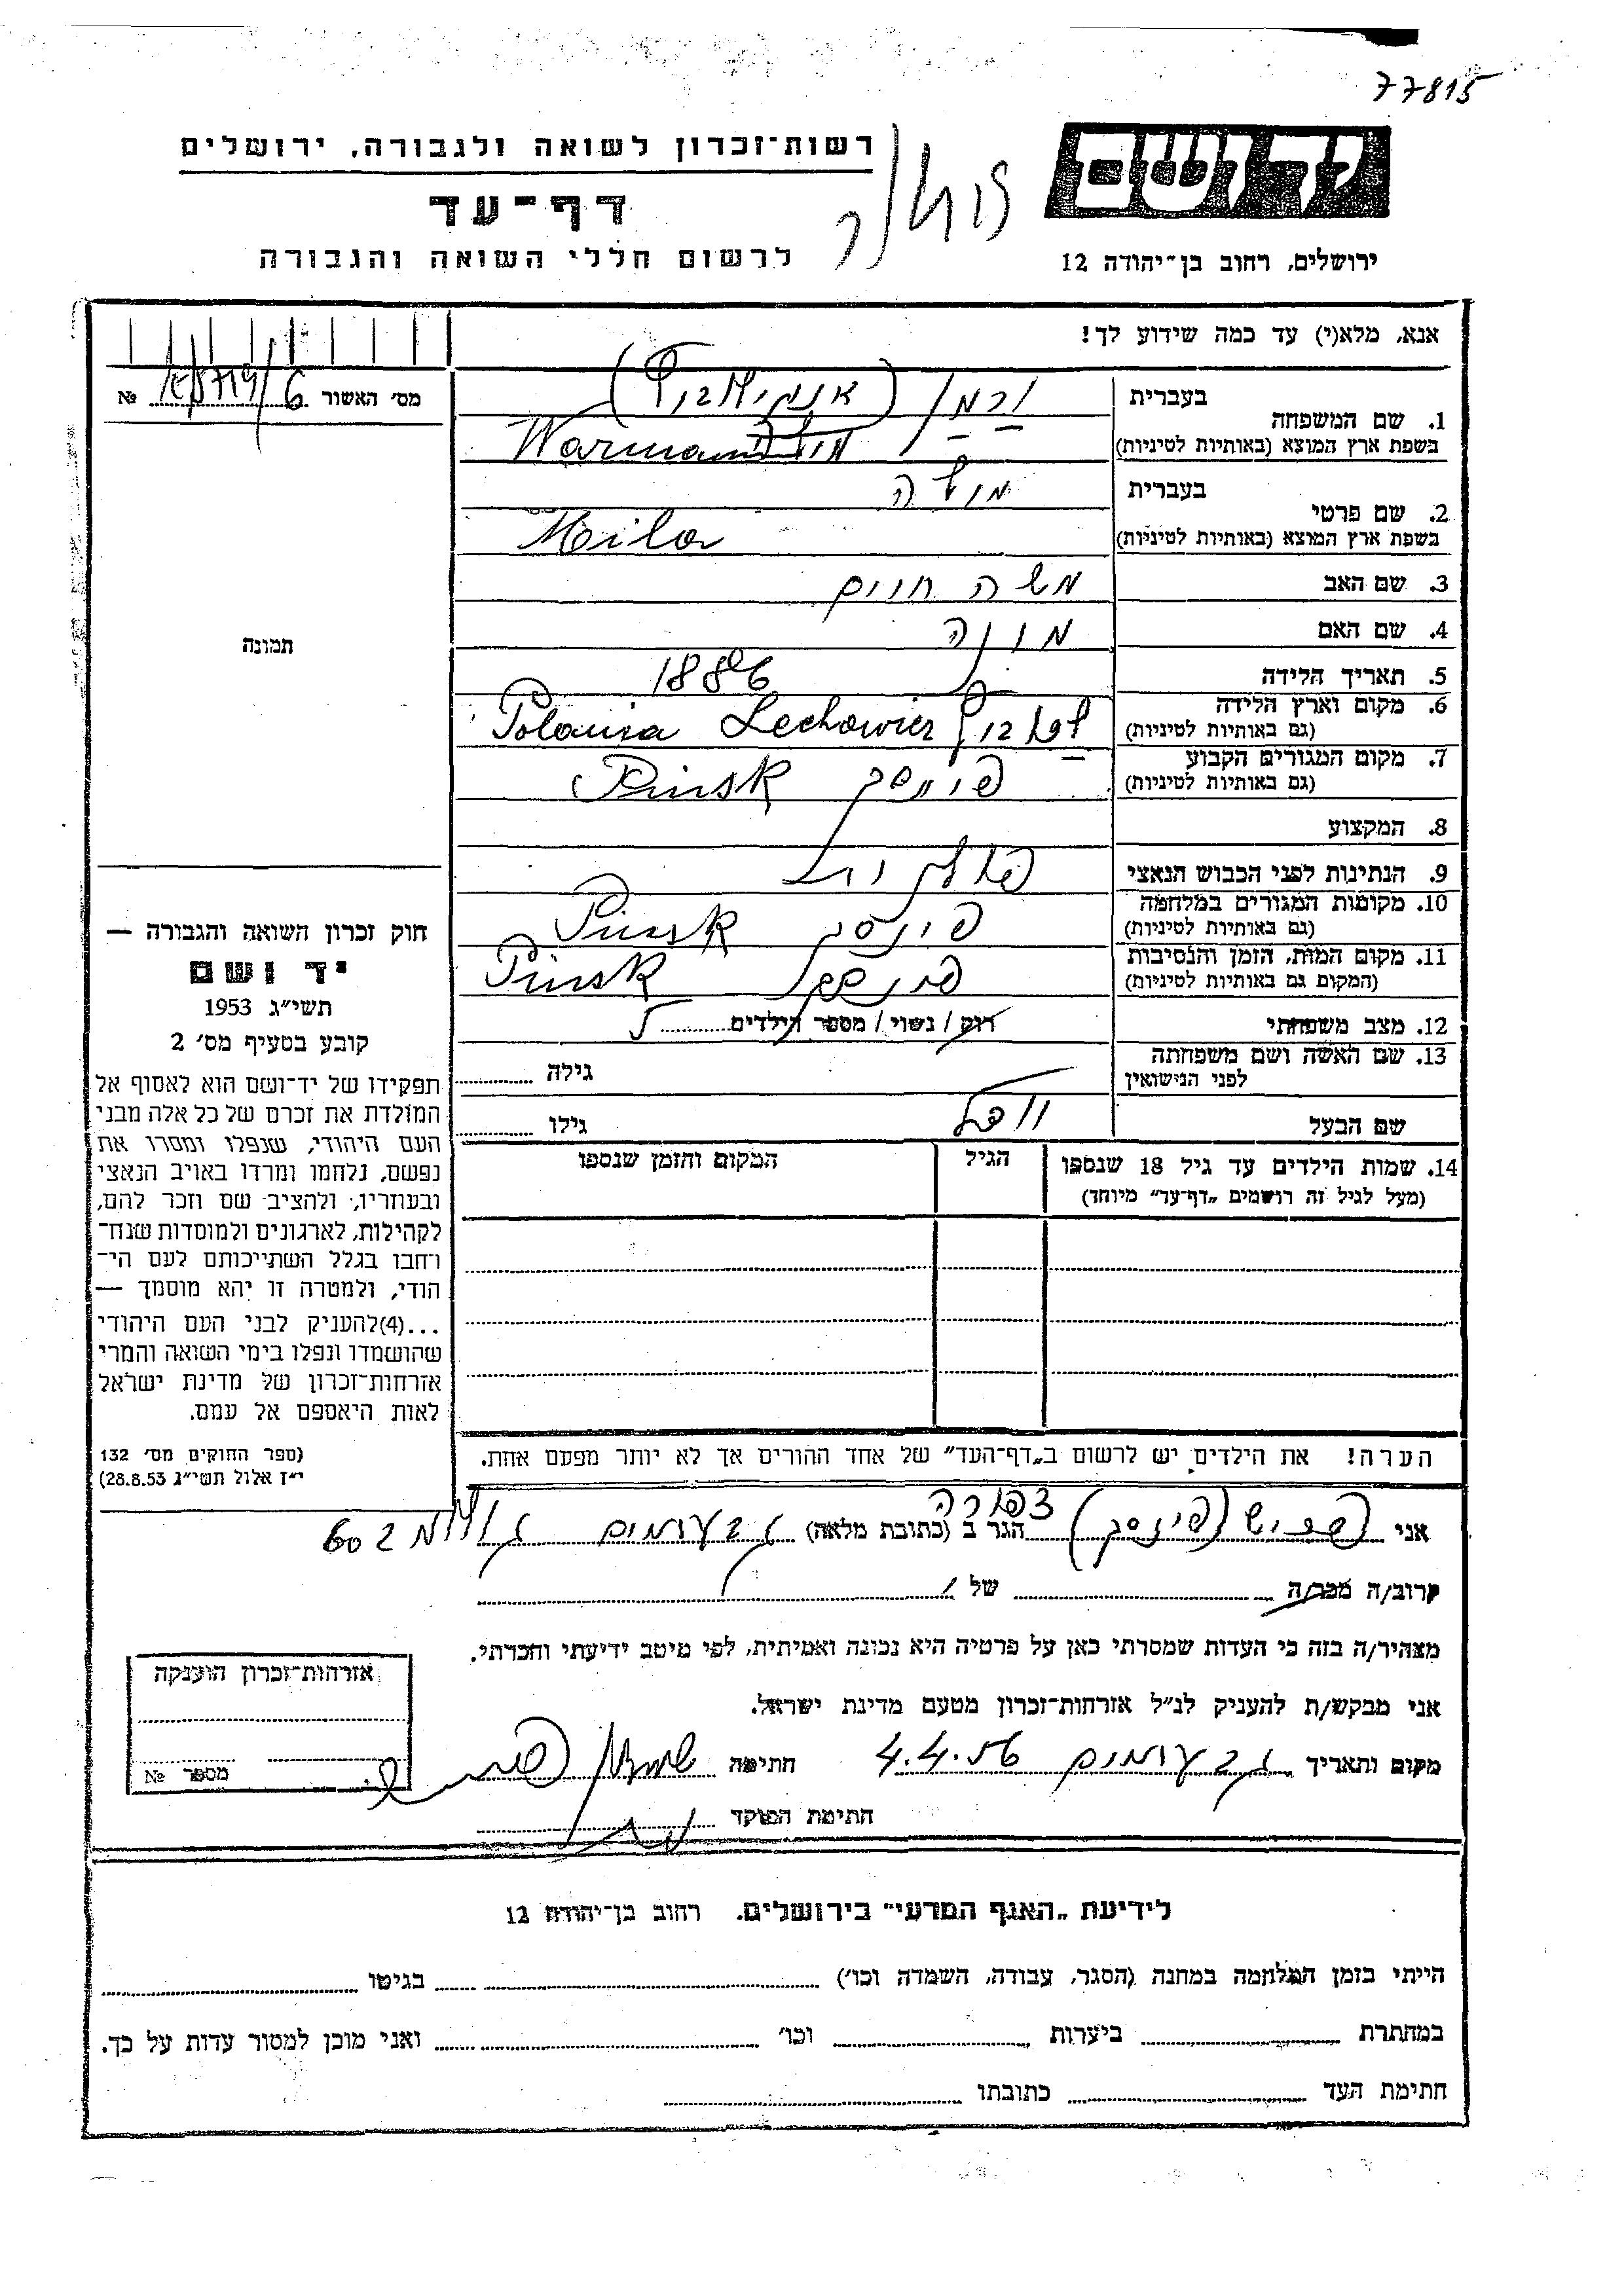 77815
רשות־זכרון לשואה ולגבורה, ירושלים
דף־עד
לרשום חללי השואה והגבורה
יד ושם
ירושלים, רחוב בן־יהודה 12
אנא, מלא(י) עד כמה שידוע לך!
מס׳ האשור № 6
1. שם המשפחה
בעברית ורמן
בשפת ארץ המוצא (באותיות לטיניות) Warman
2. שם פרטי
בעברית
בשפת ארץ המוצא (באותיות לטיניות)
3. שם האב משה חיים
4. שם האם
5. תאריך הלידה 1886
6. מקום וארץ הלידה
(גם באותיות לטיניות) Lechowier
7. מקום המגורים הקבוע
(גם באותיות לטיניות) פינסק Pinsk
8. המקצוע
9. הנתינות לפני הכבוש הנאצי
10. מקומות המגורים במלחמה
(גם באותיות לטיניות) פינסק Pinsk
11. מקום המות, הזמן והנסיבות
(המקום גם באותיות לטיניות) פינסק Pinsk
12. מצב משפחתי רוק / נשוי / מספר הילדים 5
13. שם האשה ושם משפחתה
לפני הנישואין
גילה
שם הבעל
גילו
14. שמות הילדים עד גיל 18 שנספו
(מעל לגיל זה רושמים „דף־עד״ מיוחד)
הגיל
המקום והזמן שנספו
תמונה
חוק זכרון השואה והגבורה —
יד ושם
תשי״ג 1953
קובע בסעיף מס׳ 2
תפקידו של יד־ושם הוא לאסוף אל
המולדת את זכרם של כל אלה מבני
העם היהודי, שנפלו ומסרו את
נפשם, נלחמו ומרדו באויב הנאצי
ובעוזריו, ולהציב שם וזכר להם,
לקהילות, לארגונים ולמוסדות שנח־
רבו בגלל השתייכותם לעם הי־
הודי, ולמטרה זו יהא מוסמך —
...(4) להעניק לבני העם היהודי
שהושמדו ונפלו בימי השואה והמרי
אזרחות־זכרון של מדינת ישראל
לאות היאספם אל עמם.
(ספר החוקים מס׳ 132
י״ז אלול תשי״ג 28.8.53)
הערה! את הילדים יש לרשום ב„דף־העד״ של אחד ההורים אך לא יותר מפעם אחת.
צפורה
אני (פינסק) הגר ב (כתובת מלאה) גבעתיים
קרוב/ה מכר/ה של
מצהיר/ה בזה כי העדות שמסרתי כאן על פרטיה היא נכונה ואמיתית, לפי מיטב ידיעתי והכרתי.
אני מבקש/ת להעניק לנ״ל אזרחות־זכרון מטעם מדינת ישראל.
מקום ותאריך גבעתיים 4.4.56 חתימה
חתימת הפוקד
אזרחות־זכרון הוענקה
מספר №
לידיעת „האגף המדעי״ בירושלים. רחוב בן־יהודה 12
הייתי בזמן המלחמה במחנה (הסגר, עבודה, השמדה וכו׳) בגיטו
במחתרת ביערות וכו׳ ואני מוכן למסור עדות על כך.
חתימת העד כתובתו